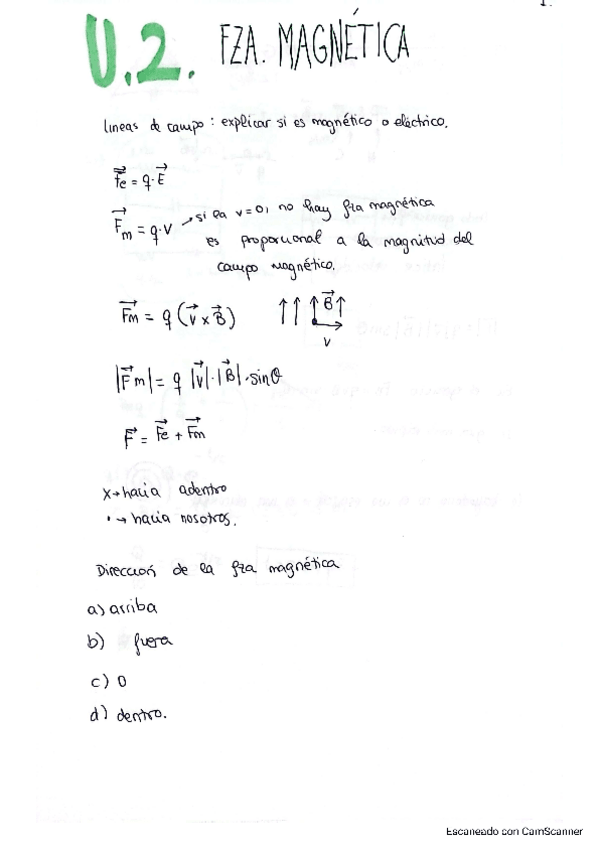 1.
U.2. FZA. MAGNÉTICA
líneas de campo: explicar si es magnético o eléctrico.
F⃗e = q·E⃗
F⃗m = q·v → si la v=0, no hay fza magnética
es proporcional a la magnitud del
campo magnético.
F⃗m = q (v⃗ x B⃗) ↑↑↑B⃗↑
v
|F⃗m| = q |v⃗|·|B⃗|·sinθ
F⃗ = F⃗e + F⃗m
x→hacia adentro
·→ hacia nosotros.
Dirección de la fza magnética
a) arriba
b) fuera
c) 0
d) dentro.
Escaneado con CamScanner